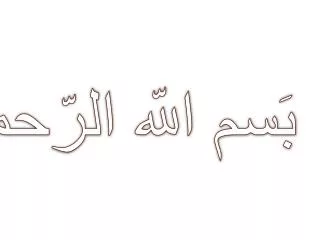 بَسم الله الرّحم